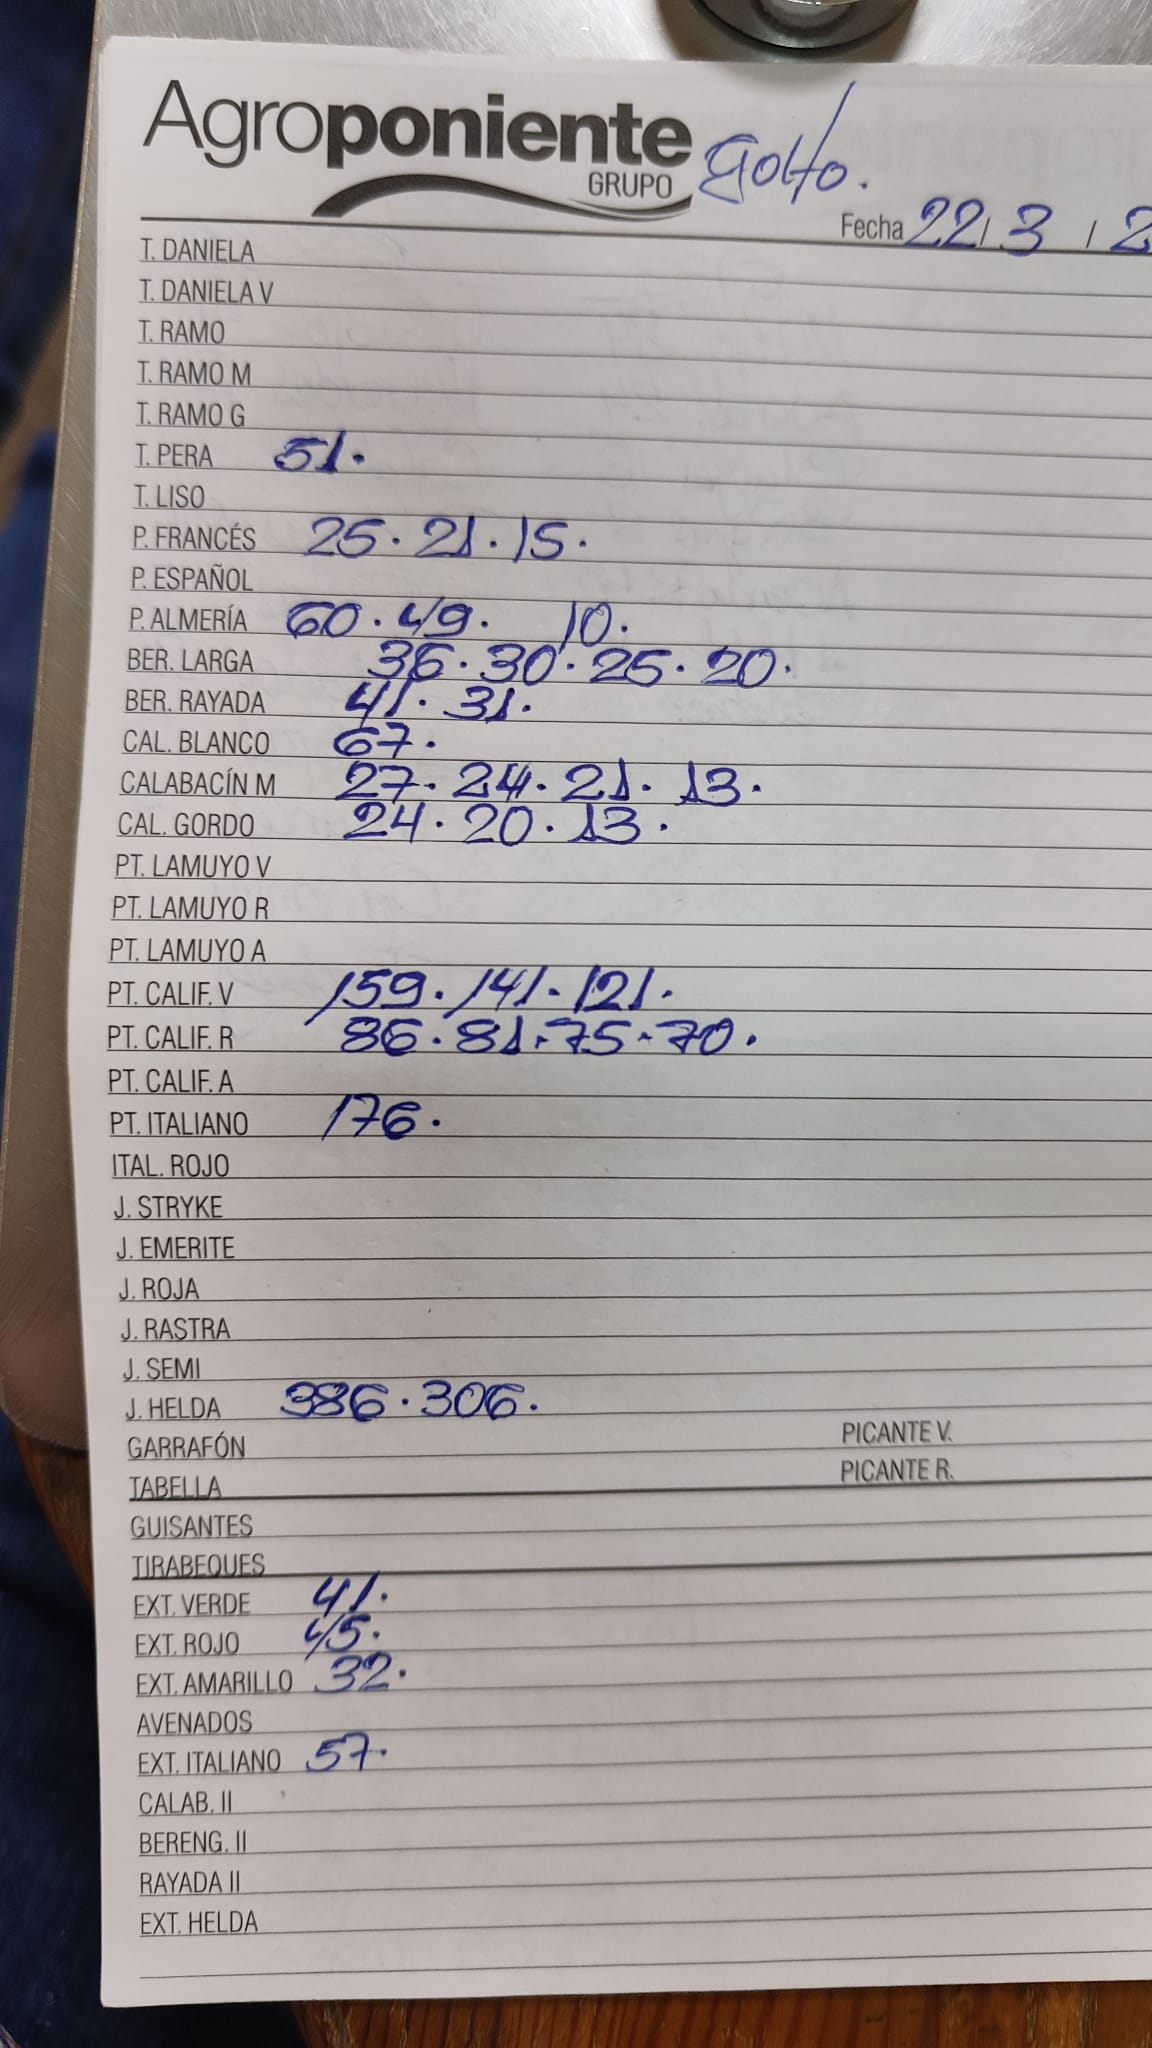 Agroponiente
GRUPO
Golfo.
Fecha 22/ 3 / 2
T. DANIELA
T. DANIELA V
T. RAMO
T. RAMO M
T. RAMO G
T. PERA 51.
T. LISO
P. FRANCÉS 25. 21. 15.
P. ESPAÑOL
P. ALMERÍA 60. 49. 10.
BER. LARGA 36. 30. 25. 20.
BER. RAYADA 41. 31.
CAL. BLANCO 67.
CALABACÍN M 27. 24. 21. 13.
CAL. GORDO 24. 20. 13.
PT. LAMUYO V
PT. LAMUYO R
PT. LAMUYO A
PT. CALIF. V 159. 141. 121.
PT. CALIF. R 86. 81. 75. 70.
PT. CALIF. A
PT. ITALIANO 176.
ITAL. ROJO
J. STRYKE
J. EMERITE
J. ROJA
J. RASTRA
J. SEMI
J. HELDA 386. 306.
GARRAFÓN PICANTE V.
TABELLA PICANTE R.
GUISANTES
TIRABEQUES
EXT. VERDE 41.
EXT. ROJO 45.
EXT. AMARILLO 32.
AVENADOS
EXT. ITALIANO 57.
CALAB. II
BERENG. II
RAYADA II
EXT. HELDA